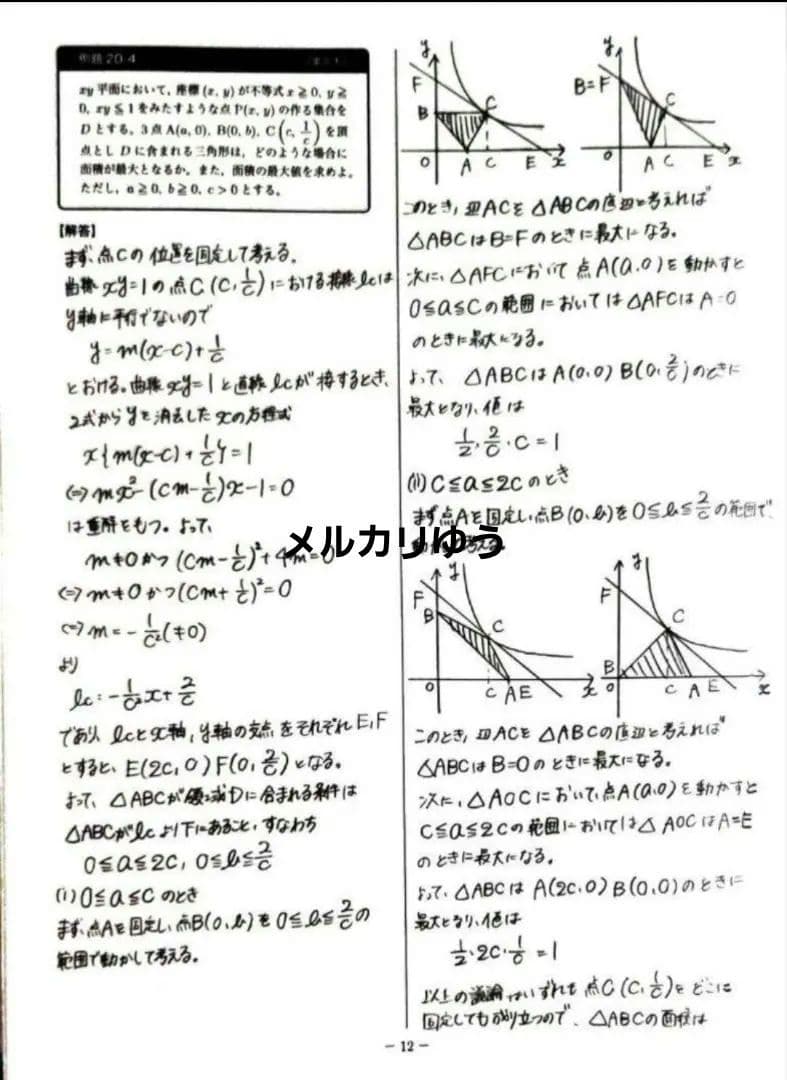 例題 20.4
xy 平面において,座標 (x, y) が不等式 x ≧ 0, y ≧
0, xy ≦ 1 をみたすような点 P(x, y) の作る集合を
D とする。3 点 A(a, 0), B(0, b), C(c, 1/c) を頂
点とし D に含まれる三角形は,どのような場合に
面積が最大となるか。また,面積の最大値を求めよ。
ただし,a ≧ 0, b ≧ 0, c > 0 とする。
【解答】
まず,点Cの位置を固定して考える。
曲線 xy=1 の点 C(C, 1/C) における接線 lc は
y軸に平行でないので
y=m(x-c)+1/C
とおける。曲線 xy=1 と直線 lc が接するとき,
2式から y を消去した x の方程式
x{m(x-c)+1/C}=1
⇔ mx²-(cm-1/C)x-1=0
は重解をもつ。よって,
m≠0かつ (cm-1/C)²+4m=0
⇔ m≠0かつ(cm+1/C)²=0
⇔ m=-1/C²(≠0)
より
lc:-1/C²x+2/C
であり, lcとx軸,y軸の交点をそれぞれE,F
とすると, E(2C,0) F(0,2/C) となる。
よって, △ABCが領域Dに含まれる条件は
△ABCがlcより下にあること,すなわち
0≦a≦2C, 0≦b≦2/C
(i) 0≦a≦C のとき
まず,点Aを固定し,点B(0,b)を 0≦b≦2/Cの
範囲で動かして考える。
y
F
B
C
O
A
C
E
x
y
B=F
C
O
A
C
E
x
このとき, 辺ACを△ABCの底辺と考えれば
△ABCはB=Fのときに最大になる。
次に, △AFCにおいて点A(a,0)を動かすと
0≦a≦Cの範囲においては△AFCはA=0
のときに最大になる。
よって, △ABCはA(0,0) B(0,2/C)のときに
最大となり, 値は
1/2・2/C・C=1
(ii) C≦a≦2Cのとき
まず点Aを固定し,点B(0,b)を0≦b≦2/Cの範囲で、
メルカリゆう
y
F
B
C
O
C
A
E
x
y
F
C
B
O
C
A
E
x
このとき, 辺ACを△ABCの底辺と考えれば
△ABCはB=0のときに最大になる。
次に, △AOCにおいて,点A(a,0)を動かすと
C≦a≦2Cの範囲においては△AOCはA=E
のときに最大になる。
よって, △ABCは A(2C,0) B(0,0)のときに
最大となり, 値は
1/2・2C・1/C=1
以上の議論はいずれも点C(C,1/C)をどこに
固定しても成り立つので、△ABCの面積は
- 12 -